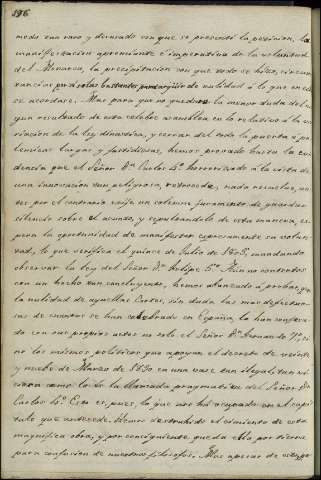 196
modo tan raro y desusado con que se presentó la peticion, la
manifestacion apremiante é imperativa de la voluntad
del Monarca, la precipitacion con que todo se hizo, circuns
tancias por si solas bastantes para argüir de nulidad á lo que en ellas
se acordase. Mas para que no quedase la menor duda del
gun resultado de esta celebre asamblea en lo relativo á la va
riacion de la ley dinastica, y cerrar del todo la puerta á po
lemicas largas y fastidiosas, hemos provado hasta la evi
dencia que el Señor Dn. Carlos 4º. horrorizado á la vista de
una innovacion tan peligrosa, retrocede, nada resuelve, an
tes por el contrario exije un solemne juramento de guardar
silencio sobre el asunto, y sepultandolo de esta manera, es
pera la oportunidad de manifestar espresamente su volun
tad, lo que verifica el quince de Julio de 1805, mandando
observar la ley del Señor Dn. Felipe 5º. Aun no contentos
con un hecho tan concluyente, hemos abanzado á probar que
la nulidad de aquellas Cortes, sin duda las mas defectuo
sas de cuantas se han celebrado en España, la han confesa
do con sus propios actos no solo el Señor Dn. Fernando 7º, si
no los mismos politicos que apoyan el decreto de veinte
y nueve de Marzo de 1830 en una base tan ilegal tan vi
ciosa como lo fue la llamada pragmatica del Señor Dn.
Carlos 4º. Esto es, pues, lo que nos ha ocupado en el capi
tulo que antecede. Hemos destruhido el cimiento de esta
magnifica obra, y por consiguiente queda ella por tierra
para confusion de nuestros filosofos. Mas apesar de